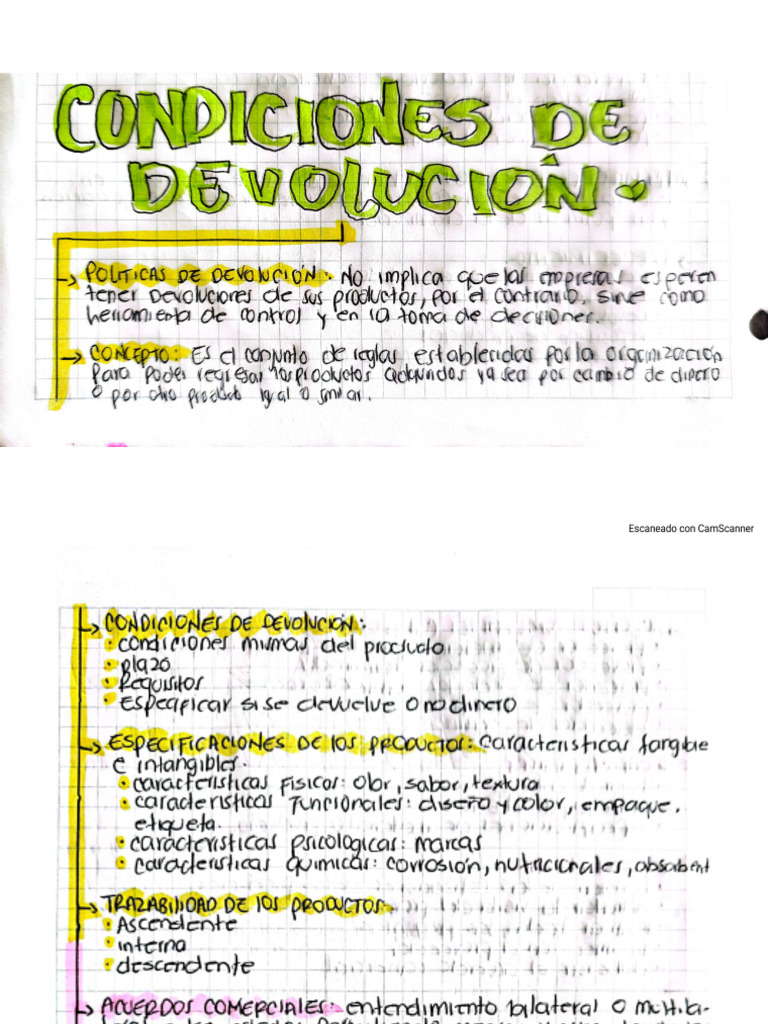 CONDICIONES DE
DEVOLUCIÓN
→ POLITICAS DE DEVOLUCIÓN: NO implica que las empresas esperen
tener Devoluciones de sus productos, por el contrario, sirve como
herramienta de control y en la toma de decisiones.
→ CONCEPTO: Es el conjunto de reglas establecidas por la organización
para poder regresar los productos adquiridos ya sea por cambio de dinero
o por otro producto igual o similar.
Escaneado con CamScanner
→ CONDICIONES DE DEVOLUCIÓN:
• condiciones mismas del producto
• plazo
• Requisitos
• Especificar si se devuelve o no dinero
→ ESPECIFICACIONES DE LOS PRODUCTOS: características tangible
e intangibles.
• características Fisicas: Olor, sabor, textura
• características Funcionales: diseño y color, empaque,
etiqueta.
• características psicologicas: marcas
• características Quimicas: corrosión, nutricionales, absorbent
→ TRAZABILIDAD DE LOS PRODUCTOS:
• Ascendente
• interna
• descendente
→ ACUERDOS COMERCIALES: entendimiento bilateral o multila-